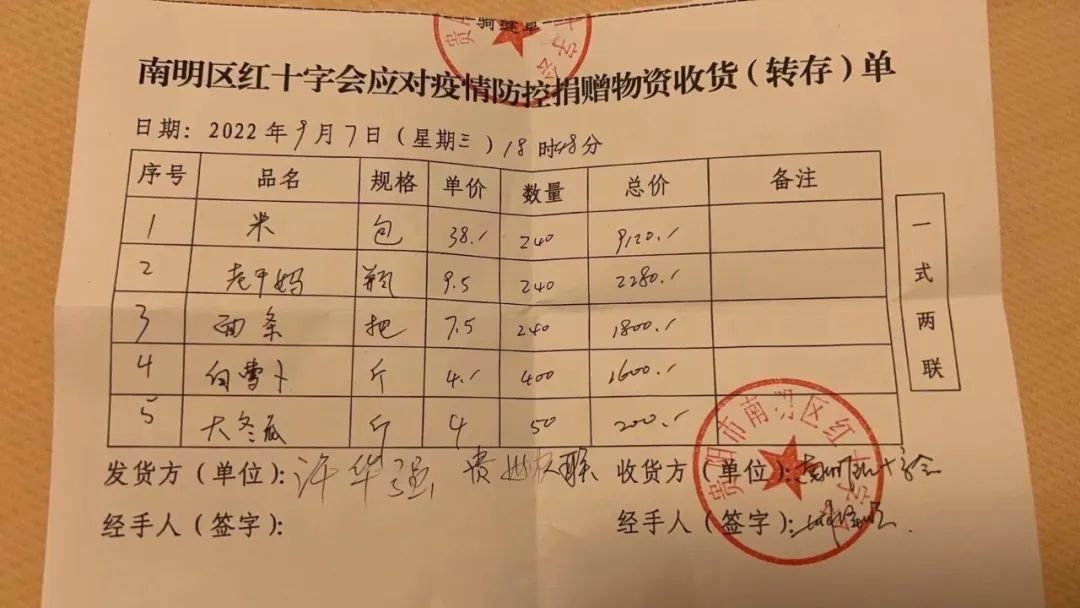 骑缝章
南明区红十字会应对疫情防控捐赠物资收货(转存)单
日期: 2022 年 9 月 7 日 (星期三) 18 时 48 分
序号 品名 规格 单价 数量 总价 备注
1 米 包 38.- 240 9120.-
2 老干妈 瓶 9.5 240 2280.-
3 面条 把 7.5 240 1800.-
4 白萝卜 斤 4.- 400 1600.-
5 大冬瓜 斤 4 50 200.-
一式两联
发货方(单位): 许华强 收货方(单位): 南明区红十字会
经手人(签字): 经手人(签字):
贵阳市南明区红十字会